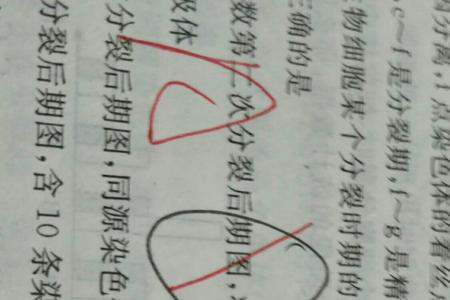 因分离,f点染色体的着丝
e～f是分裂期,f～g是精
物细胞某个分裂时期的
正确的是
数第二次分裂后期图,
极体
分裂后期图,同源染色
分裂后期图,含10条染